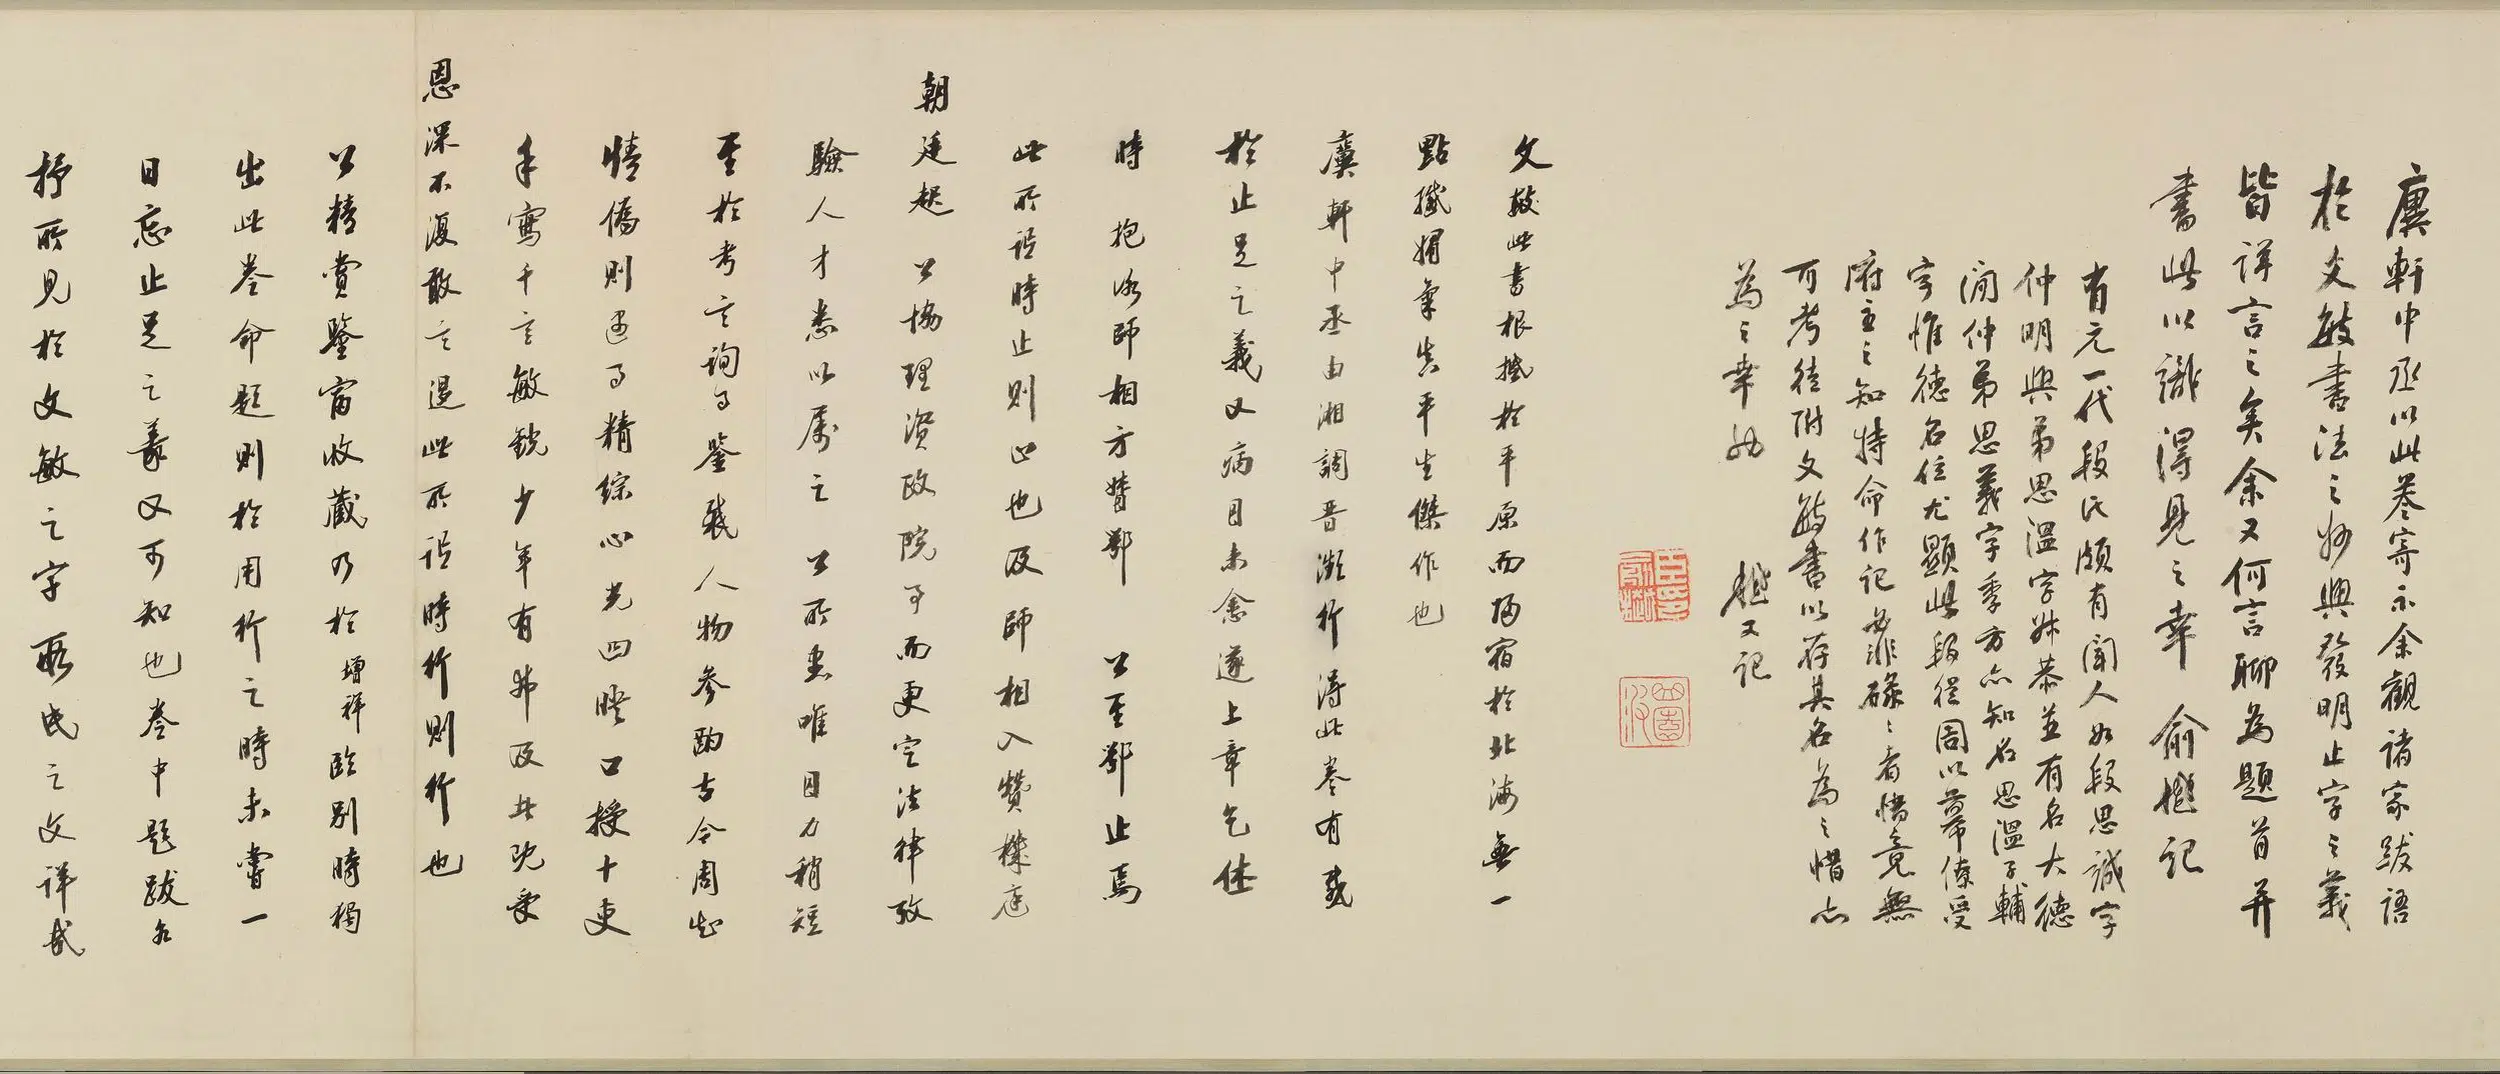 虞軒中丞以此卷寄示余觀諸家跋語
於文敏書法之妙與發明止字之義
皆詳言之矣余又何言聊為題首并
書此以識得見之幸　俞樾記
有元一代段氏頗有聞人如段思誠字
仲明與弟思溫字叔恭並有名大德
間仲弟思義字季方亦知名思溫子輔
字惟德名位尤顯此段從周以幕僚受
府主之知特命作記必非碌碌者惜竟無
可考徒附文敏書以存其名為之惜亦
為之幸也　樾又記
文敏此書根撼於平原而歸宿於北海無一
點纖媚氣真平生傑作也
虞軒中丞由湘調晉瀕行得此卷有感
於止足之義又病目未愈遂上章乞休
時　抱冰師相方督鄂　公至鄂止焉
此所謂時止則止也及師相入贊樞廷
朝廷起　公協理資政院事而更定法律考
驗人才悉以屬之　公所患唯目力稍短
至於考言詢事鑒裁人物參酌古今周知
情偽則遇事精綜心光四映口授十吏
手寫千言敏銳少年有弗及者既受
恩深不復敢言退此所謂時行則行也
公精賞鑒富收藏乃於增祥臨別時獨
出此卷命題則於用行之時未嘗一
日忘止足之義又可知也卷中題跋各
抒所見於文敏之字段氏之文詳哉